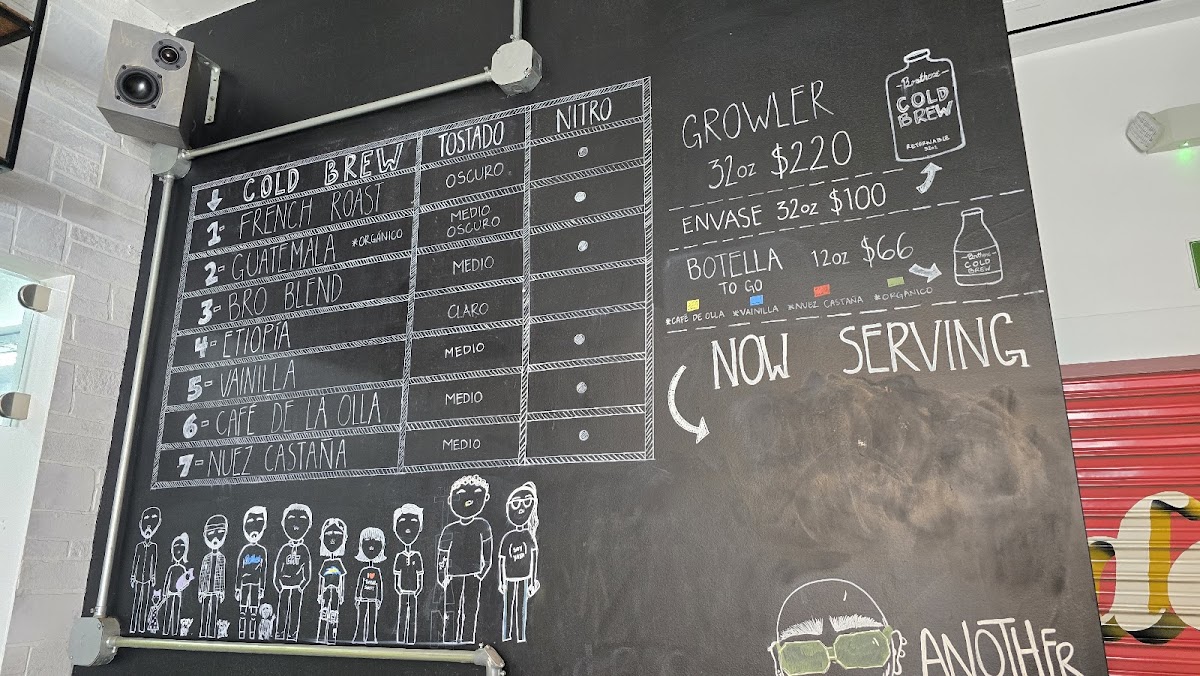 ↓ COLD BREW TOSTADO NITRO
1- FRENCH ROAST OSCURO •
2- GUATEMALA *ORGÁNICO MEDIO OSCURO •
3- BRO BLEND MEDIO •
4- ETIOPÍA CLARO
5- VAINILLA MEDIO •
6- CAFÉ DE LA OLLA MEDIO •
7- NUEZ CASTAÑA MEDIO •
GROWLER
32oz $220
COLD
BREW
RETORNABLE
32oz
ENVASE 32oz $100
BOTELLA 12oz $66
TO GO
COLD
BREW
*CAFÉ DE OLLA *VAINILLA *NUEZ CASTAÑA *ORGÁNICO
NOW SERVING
ANOTHER